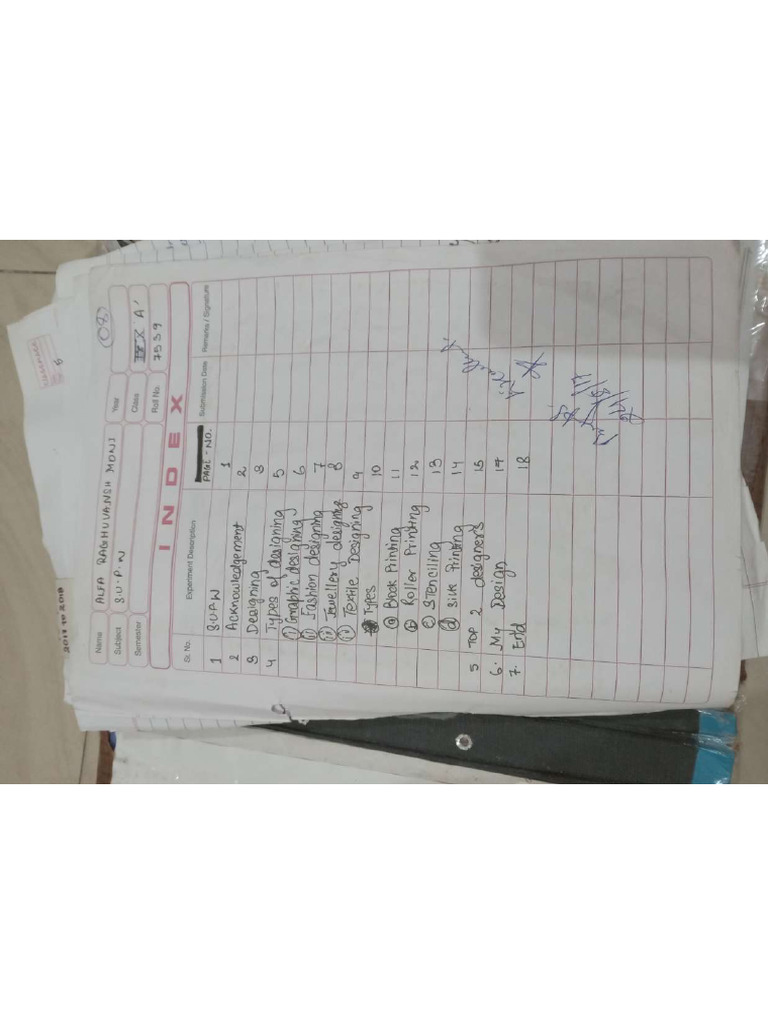 Name ALFA RAGHUVANSH MONI
Subject S.U.P.W Year
Semester Class IX A'
Roll No. 7539
INDEX
Sr. No. Experiment Description PAGE-NO. Submission Date Remarks / Signature
1 S.U.P.W 1
2 Acknowledgement 2
3 Designing 3
4 Types of designing 5
i Graphic designing 6
ii Fashion designing 7
iii Jewellery designing 8
iv Textile Designing 9
Types 10
a Block Printing 11
b Roller Printing 12
c Stenciling 13
d Silk Printing 14
5 TOP 2 designer's 15
6. My Design 17
7. End 18